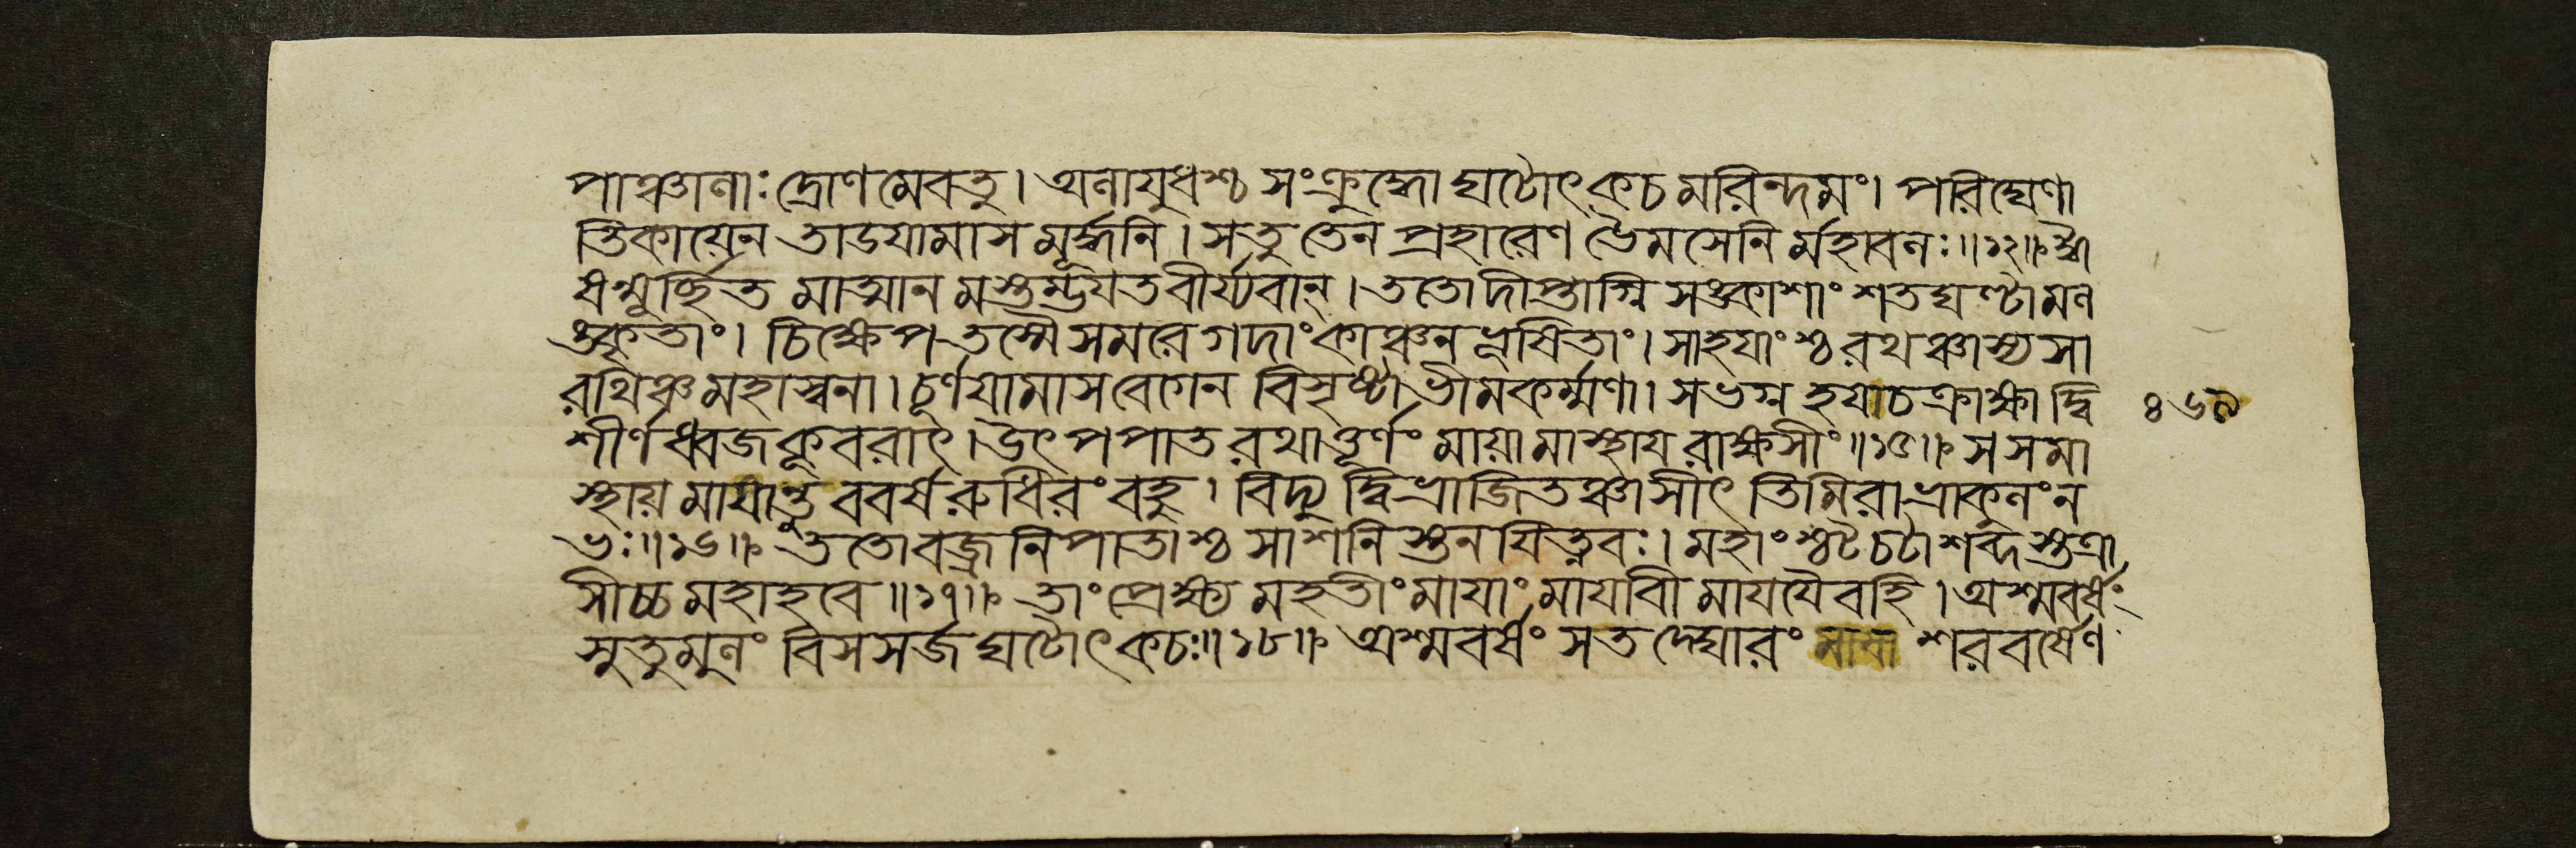 পাঞ্চালাঃ দ্রোণমেবতু। অলাযুধশ্চ সংক্রুদ্ধো ঘটোৎকচমরিন্দমং। পরিঘেণা
তিকায়েন তাডযামাস মূর্দ্ধনি। সতু তেন প্রহারেণ ভৈমসেনি র্মহাবলঃ॥১২॥ঈ
ষন্মূর্চ্ছিত মাত্মান মস্তম্ভযত বীর্য্যবান্। ততোদীপ্তাগ্নি সঙ্কাশাং শতঘণ্টামল
ঙ্কৃতাং। চিক্ষেপ তস্মৈ সমরে গদাং কাঞ্চনভূষিতাং। সাহযাংশ্চ রথঞ্চাস্য সা
রথিঞ্চ মহাস্বনা। চূর্ণযামাস বেগেন বিসৃষ্টা ভীমকর্ম্মণা। সভগ্ন হযচক্রাক্ষা দ্বি
শীর্ণধ্বজ কূবরাৎ। উৎপপাত রথাত্তূর্ণং মায়ামাস্থায রাক্ষসীং॥১৫॥ স সমা
স্থায় মাযান্তু ববর্ষ রুধিরং বহু। বিদ্যুদ্বিভ্রাজিতঞ্চাসীৎ তিমিরাভ্রাকুলং ন
ভঃ॥১৬॥ ততোবজ্রনিপাতাশ্চ সাশনিস্তনযিত্নবঃ। মহাংশ্চটচটাশব্দ স্তত্রা
সীচ্চ মহাহবে॥১৭॥ তাং প্রেক্ষ্য মহতীং মাযাং মাযাবী মাযযৈবহি। অশ্মবর্ষং
সুতুমুলং বিসসর্জ ঘটোৎকচঃ॥১৮॥ অশ্মবর্ষং সতদ্ঘোরং শরবর্ষেণ
৪৬৯